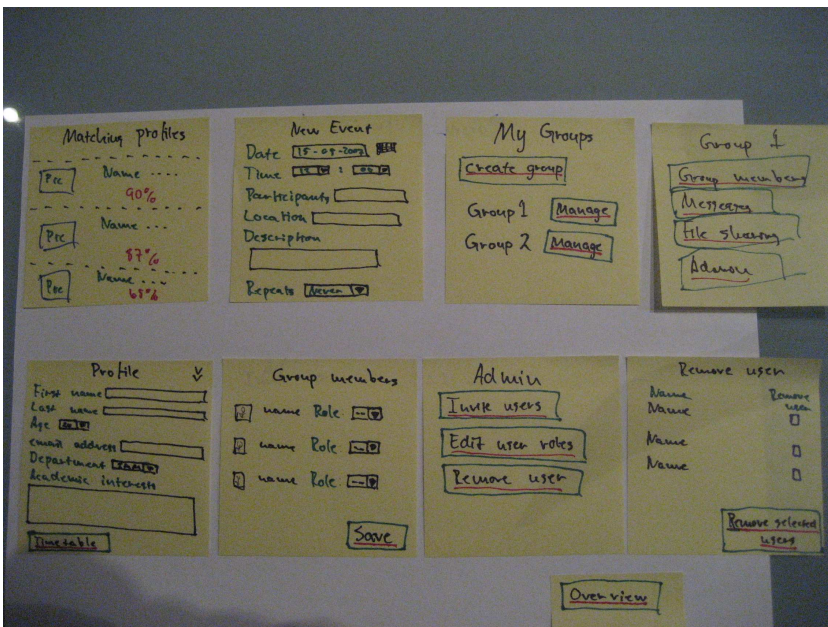 Matching profiles
Pic
Name ....
90%
Pic
Name ...
87%
Pic
Name ...
68%
New Event
Date 15-09-2007
Time :
Participants
Location
Description
Repeats Never
My Groups
create group
Group 1 Manage
Group 2 Manage
Group 1
Group members
Messages
File sharing
Admin
Profile
First name
Last name
Age
email address
Department
Academic interests
Timetable
Group members
name Role --
name Role --
name Role --
Save
Admin
Invite users
Edit user roles
Remove user
Remove user
Name Remove user
Name
Name
Name
Remove selected
users
Overview